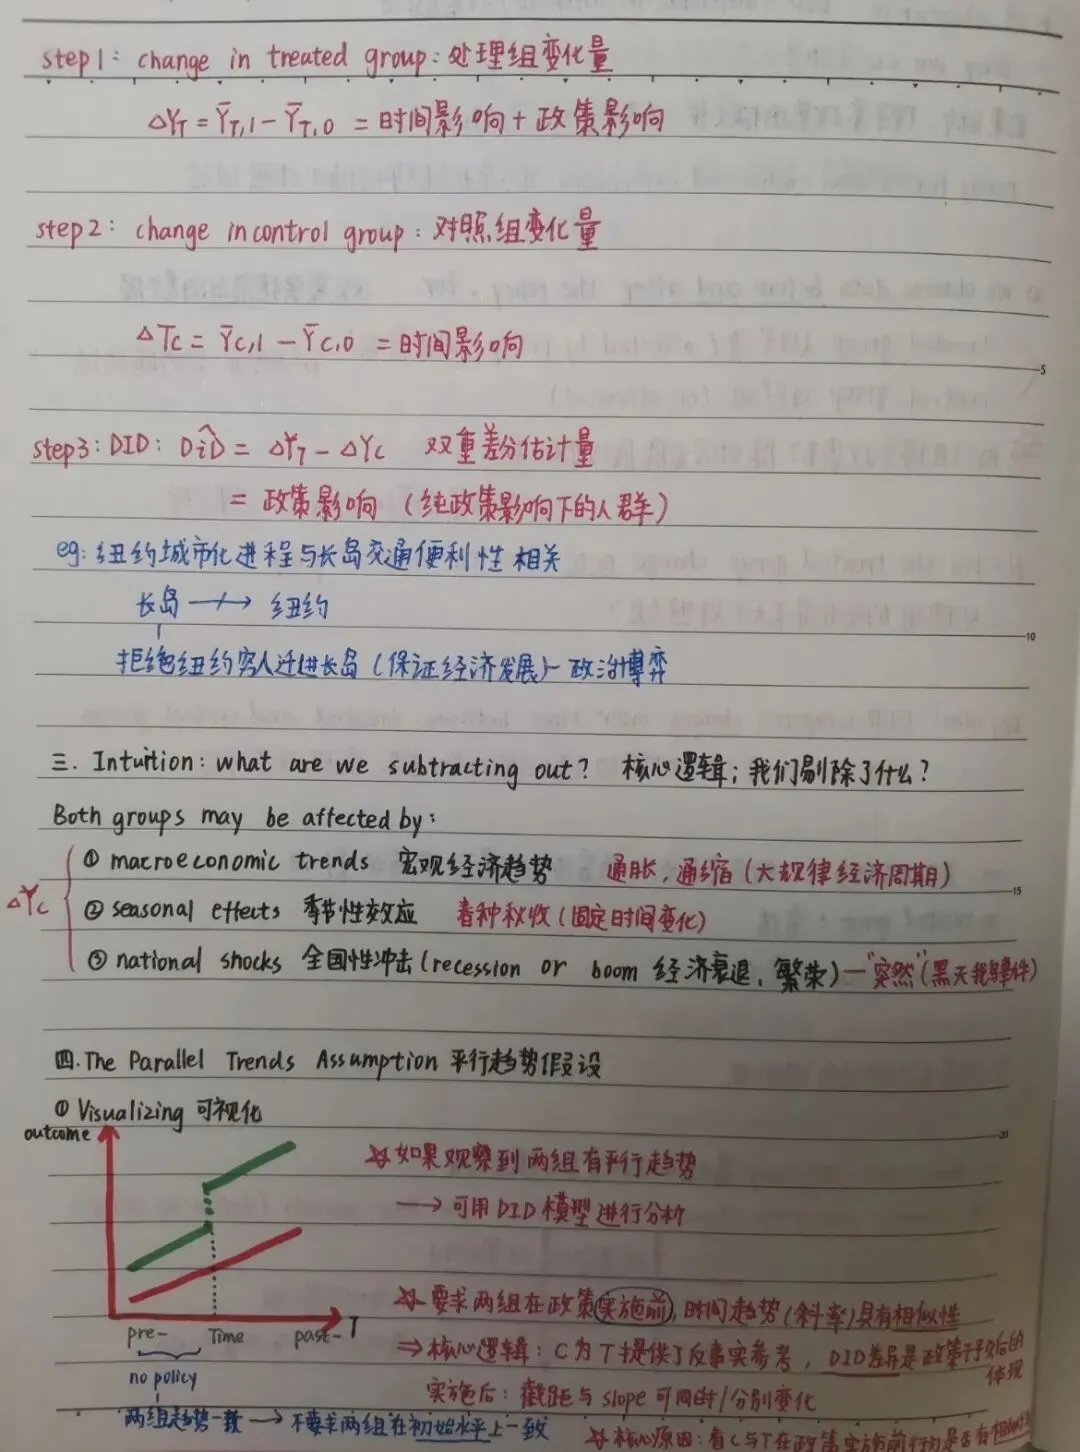 step1: change in treated group: 处理组变化量
△Y_T = Ȳ_T,1 - Ȳ_T,0 = 时间影响 + 政策影响
step2: change in control group: 对照组变化量
△Tc = Ȳc,1 - Ȳc,0 = 时间影响
5
step3: DID: DiD̂ = △Y_T - △Yc 双重差分估计量
= 政策影响 (纯政策影响下的人群)
eg: 纽约城市化进程与长岛交通便利性相关
长岛 → 纽约
10
拒绝纽约穷人迁进长岛 (保证经济发展) - 政治博弈
三. Intuition: what are we subtracting out? 核心逻辑; 我们剔除了什么?
Both groups may be affected by:
① macroeconomic trends 宏观经济趋势 通胀, 通缩 (大规律经济周期)
15
△Yc
② seasonal effects 季节性效应 春种秋收 (固定时间变化)
③ national shocks 全国性冲击 (recession or boom 经济衰退, 繁荣) — "突然" (黑天鹅事件)
四. The Parallel Trends Assumption 平行趋势假设
① Visualizing 可视化
20
outcome
如果观察到两组有平行趋势
→ 可用DID模型进行分析
要求两组在政策实施前, 时间趋势 (斜率) 具有相似性
pre- Time past- T
⇒ 核心逻辑: C为T提供了反事实参考, DID差异是政策干预后的体现
no policy
实施后: 截距与slope可同时/分别变化
两组趋势一致 → 不要求两组在初始水平上一致
核心原因: 看C与T在政策实施前行为是否有相似